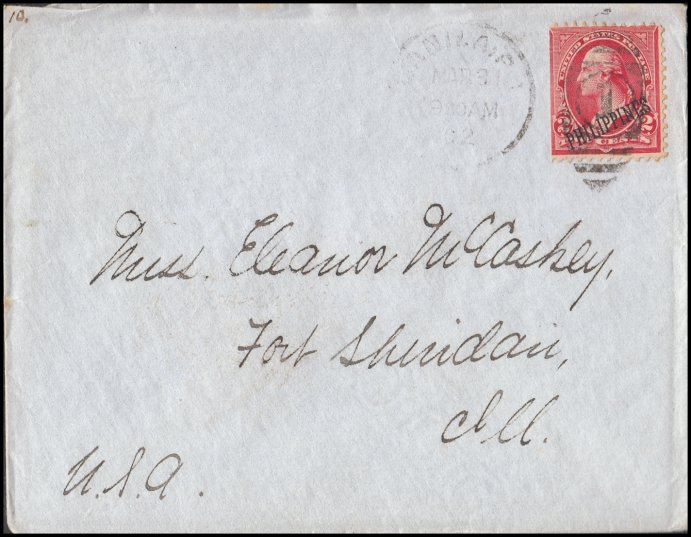 10.
MANILA, P.I.
MAR 31
9 30 AM
02
UNITED STATES POSTAGE
PHILIPPINES
2 2
Miss. Eleanor McCaskey,
Fort Sheridan,
Ill.
U.S.A.